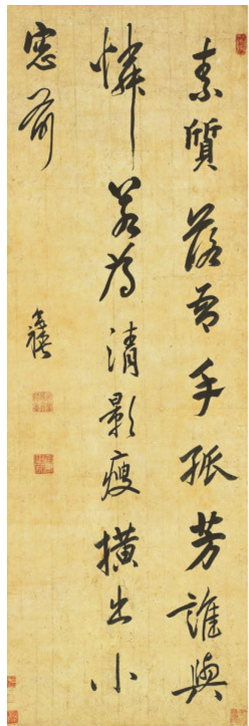 素質落雪手孤芳誰與
憐若為清影瘦橫出小
窓前